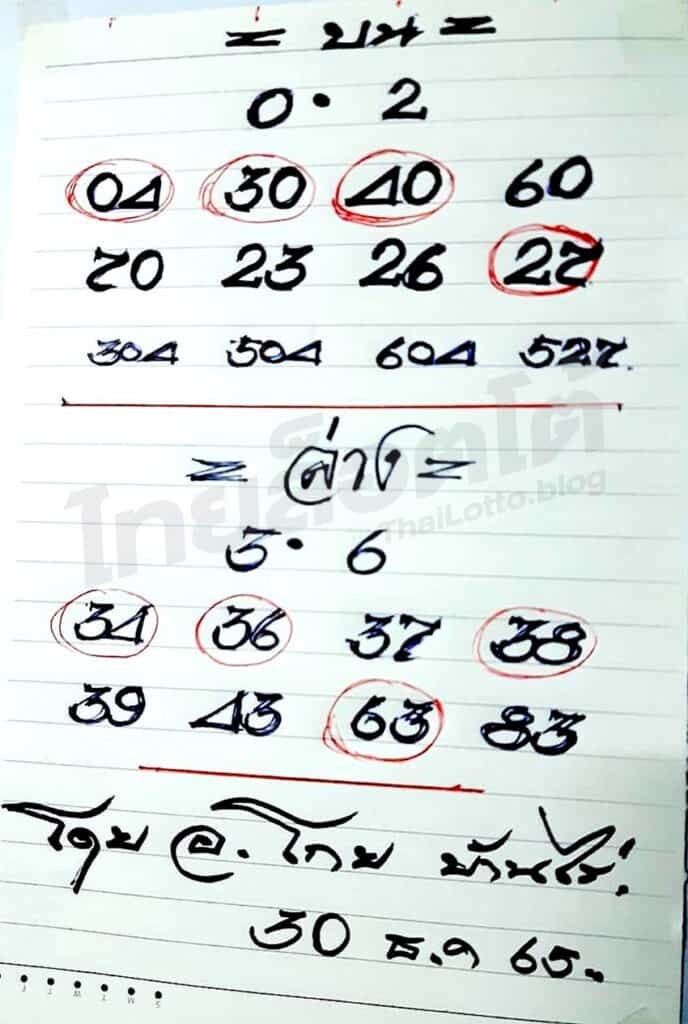 = บน =
0 • 2
04 30 40 60
70 23 26 27
304 504 604 527.
= ล่าง =
ไทยล็อตโต้
ThaiLotto.blog
3 • 6
34 36 37 38
39 43 63 83
โดย อ. โกย บ้านไร่.
30 ธ.ค 65.
S M T W T F